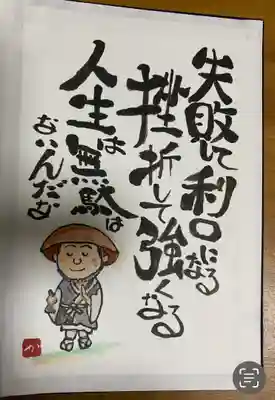 失敗して利口になる
挫折して強くなる
人生は無駄は
ないんだなあ
か